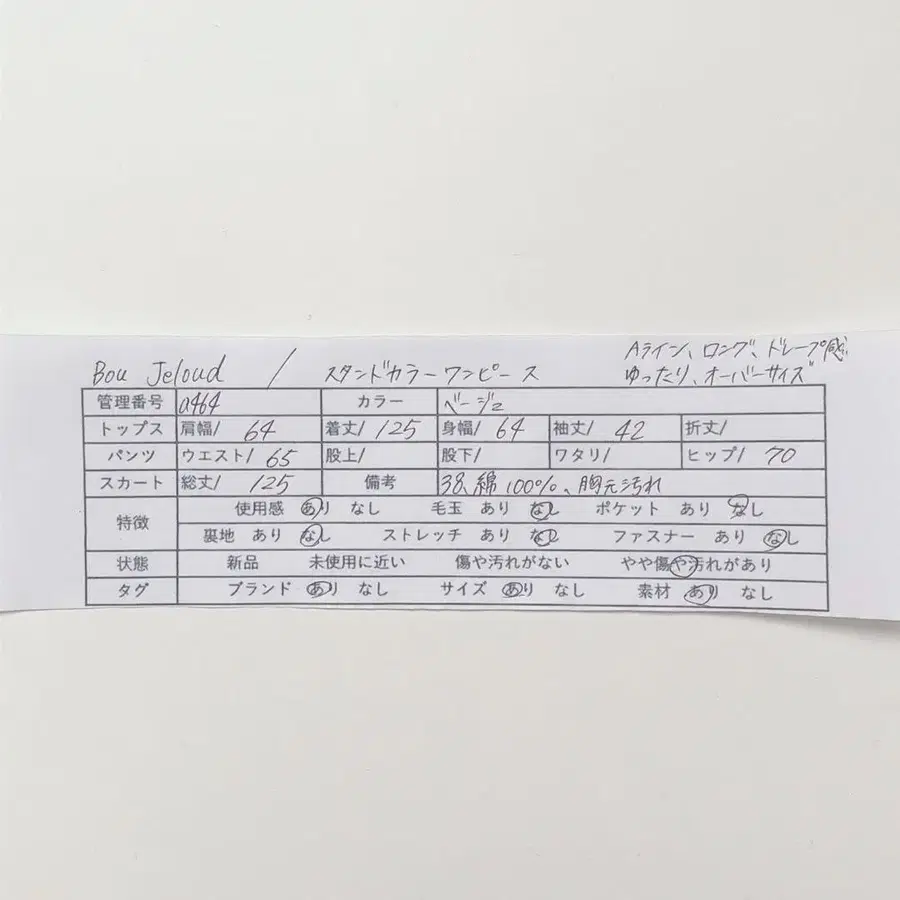 Bou Jeloud / スタンドカラーワンピース
Aライン、ロング、ドレープ感
ゆったり、オーバーサイズ
管理番号 a464 カラー ベージュ
トップス 肩幅/ 64 着丈/ 125 身幅/ 64 袖丈/ 42 折丈/
パンツ ウエスト/ 65 股上/ 股下/ ワタリ/ ヒップ/ 70
スカート 総丈/ 125 備考 38、綿100%、胸元汚れ
特徴 使用感 あり なし 毛玉 あり なし ポケット あり なし
裏地 あり なし ストレッチ あり なし ファスナー あり なし
状態 新品 未使用に近い 傷や汚れがない やや傷や汚れがあり
タグ ブランド あり なし サイズ あり なし 素材 あり なし